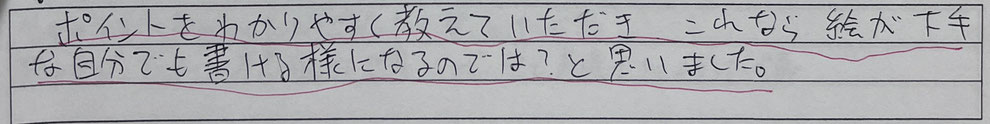 ポイントをわかりやすく教えていただき これなら 絵が下手
な自分でも書ける様になるのでは?と思いました。